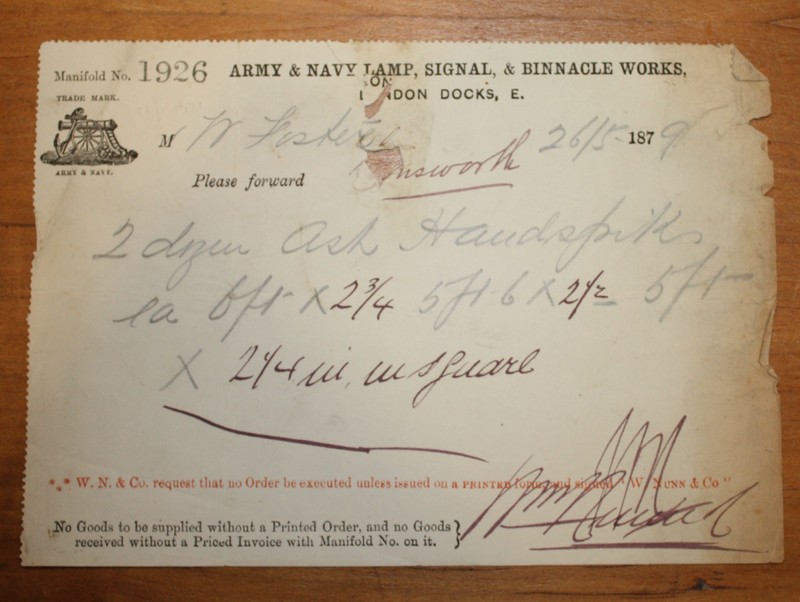 Manifold No. 1926 ARMY & NAVY LAMP, SIGNAL, & BINNACLE WORKS,
TRADE MARK.
LONDON DOCKS, E.
M W Foster 26/5 1879
ARMY & NAVY.
Please forward
2 dozen Ash Handspikes
ea 6ft X 2 3/4 5ft 6 X 2 1/2 5ft
X 2 1/4 in. in square
*** W. N. & Co. request that no Order be executed unless issued on a PRINTED form and signed "W. NUNN & Co"
No Goods to be supplied without a Printed Order, and no Goods
received without a Priced Invoice with Manifold No. on it.